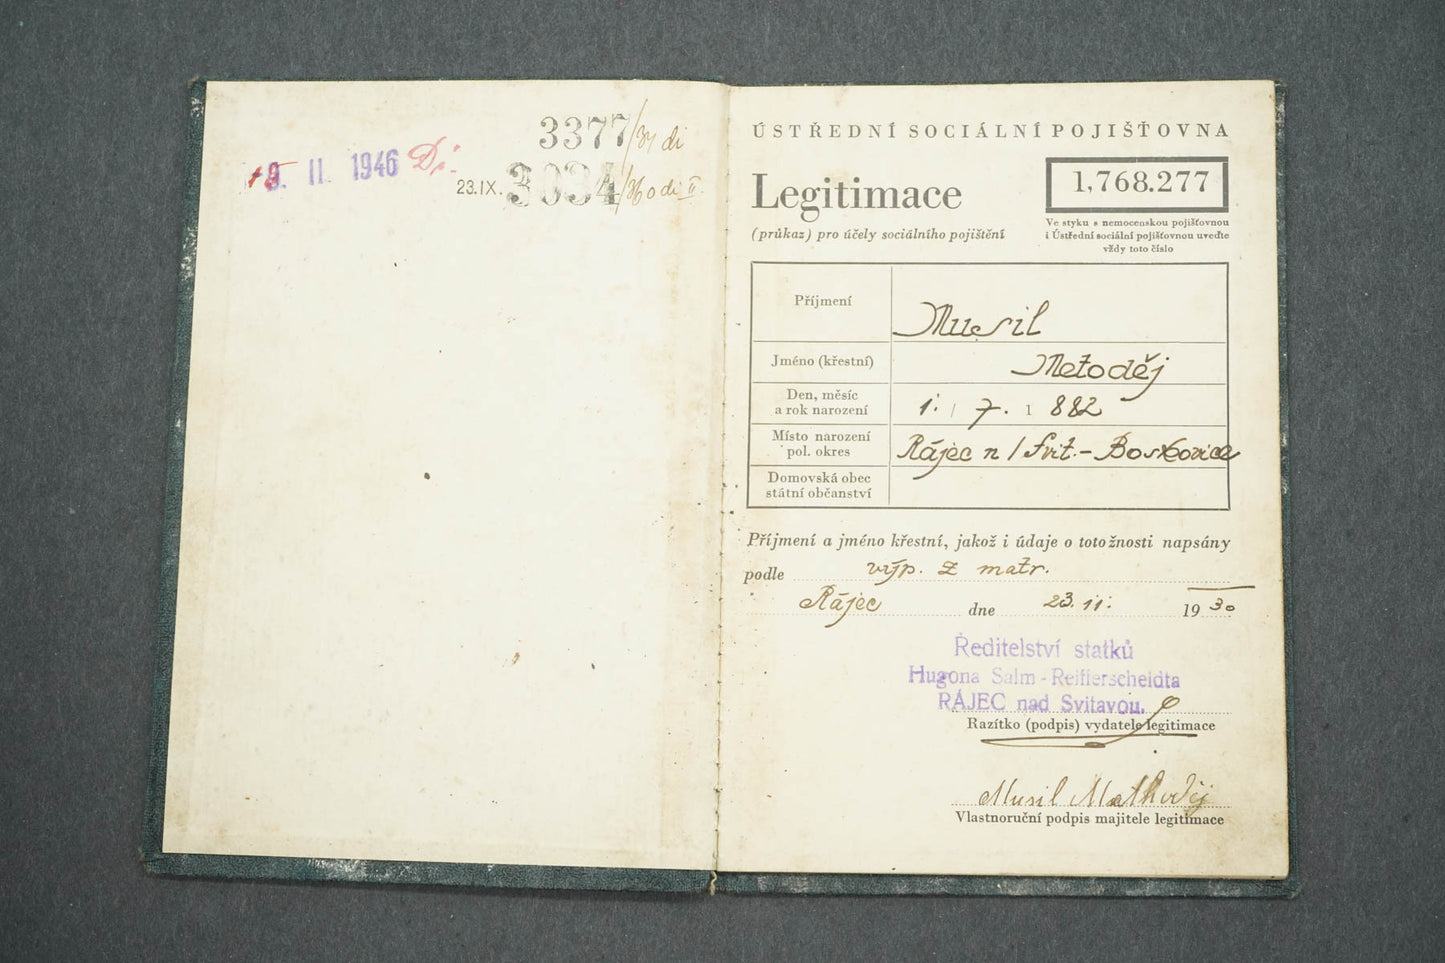 3377/34 di
9. II. 1946 Di.
23.IX. 3034/360 di II.
ÚSTŘEDNÍ SOCIÁLNÍ POJIŠŤOVNA
Legitimace
(průkaz) pro účely sociálního pojištění
1,768.277
Ve styku s nemocenskou pojišťovnou
i Ústřední sociální pojišťovnou uveďte
vždy toto číslo
Příjmení Musil
Jméno (křestní) Metoděj
Den, měsíc
a rok narození 1. / 7. 1 882
Místo narození
pol. okres Rájec n / Svit. - Boskovice
Domovská obec
státní občanství
Příjmení a jméno křestní, jakož i údaje o totožnosti napsány
podle výp. z matr.
Rájec dne 23. 11. 1930
Ředitelství statků
Hugona Salm-Reifferscheidta
RÁJEC nad Svitavou.
Razítko (podpis) vydatele legitimace
Musil Methoděj
Vlastnoruční podpis majitele legitimace